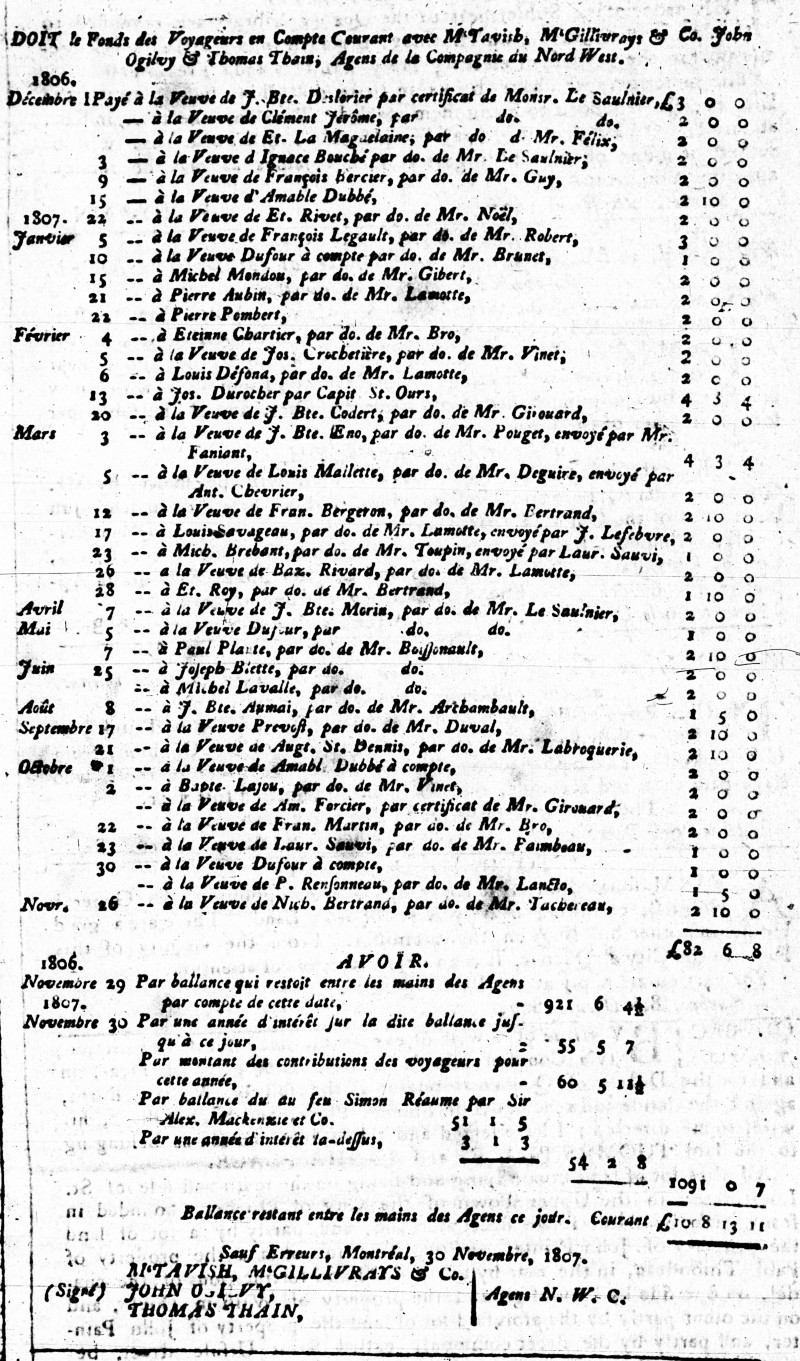 DOIT le Fonds des Voyageurs en Compte Courant avec McTavish, McGillivrays & Co. John
Ogilvy & Thomas Thain, Agens de la Compagnie du Nord West.
1806.
Décembre 1 Payé à la Veuve de J. Bte. Deslorier par certificat de Monsr. Le Saulnier, £3 0 0
— à la Veuve de Clément Jérôme, par do. do. 2 0 0
— à la Veuve de Et. La Maguelaine, par do d Mr. Félix, 2 0 0
3 — à la Veuve d Ignace Bouché par do. de Mr. Le Saulnier, 2 0 0
9 — à la Veuve de François Bercier, par do. de Mr. Guy, 2 0 0
15 — à la Veuve d'Amable Dubbé, 2 10 0
1807. 22 -- à la Veuve de Et. Rivet, par do. de Mr. Noël, 2 0 0
Janvier 5 -- à la Veuve de François Legault, par do. de Mr. Robert, 3 0 0
10 -- à la Veuve Dufour à compte par do. de Mr. Brunet, 1 0 0
15 -- à Michel Mondou, par do. de Mr. Gibert, 2 0 0
21 -- à Pierre Aubin, par do. de Mr. Lamotte, 2 0 0
22 -- à Pierre Pombert, 2 0 0
Février 4 -- à Eteinne Chartier, par do. de Mr. Bro, 2 0 0
5 -- à la Veuve de Jos. Crochetière, par do. de Mr. Vinet, 2 0 0
6 -- à Louis Défona, par do. de Mr. Lamotte, 2 0 0
13 -- à Jos. Durocher par Capit St. Ours, 4 3 4
20 -- à la Veuve de J. Bte. Codert, par do. de Mr. Girouard, 2 0 0
Mars 3 -- à la Veuve de J. Bte. Eno, par do. de Mr. Pouget, envoyé par Mr.
Faniant, 4 3 4
5 -- à la Veuve de Louis Mailette, par do. de Mr. Deguire, envoyé par
Ant. Chevrier, 2 0 0
12 -- à la Veuve de Fran. Bergeron, par do. de Mr. Bertrand, 2 10 0
17 -- à Louis Savageau, par do. de Mr. Lamotte, envoyé par J. Lefebvre, 2 0 0
23 -- à Mich. Brebant, par do. de Mr. Toupin, envoyé par Laur. Sauvi, 1 0 0
26 -- a la Veuve de Bax. Rivard, par do. de Mr. Lamotte, 2 0 0
28 -- à Et. Roy, par do. de Mr. Bertrand, 1 10 0
Avril 7 -- à la Veuve de J. Bte. Morin, par do. de Mr. Le Saulnier, 2 0 0
Mai 5 -- à la Veuve Dufour, par do. do. 1 0 0
7 -- à Paul Plante, par do. de Mr. Boissonault, 2 10 0
Juin 25 -- à Joseph Blette, par do. do. 2 0 0
-- à Michel Lavalle, par do. do. 2 0 0
Août 8 -- à J. Bte. Aumai, par do. de Mr. Archambault, 1 5 0
Septembre 17 -- à la Veuve Prevost, par do. de Mr. Duval, 2 10 0
21 -- à la Veuve de Augt. St. Dennis, par do. de Mr. Labroquerie, 2 10 0
Octobre 1 -- à la Veuve de Amabl. Dubbé à compte, 2 0 0
2 -- à Bapte. Lajou, par do. de Mr. Vinet, 2 0 0
-- à la Veuve de Am. Forcier, par certificat de Mr. Girouard, 2 0 0
22 -- à la Veuve de Fran. Martin, par do. de Mr. Bro, 2 0 0
23 -- à la Veuve de Laur. Sauvi, par do. de Mr. Faimbeau, 1 0 0
30 -- à la Veuve Dufour à compte, 1 0 0
-- à la Veuve de P. Rensonneau, par do. de Mr. Lancto, 1 5 0
Novr. 26 -- à la Veuve de Nich. Bertrand, par do. de Mr. Tachereau, 2 10 0
£82 6 8
1806. AVOIR.
Novembre 29 Par ballance qui restoit entre les mains des Agens
1807. par compte de cette date, - 921 6 4½
Novembre 30 Par une année d'intérêt sur la dite ballance jus-
qu'à ce jour, - 55 5 7
Par montant des contributions des voyageurs pour
cette année, - 60 5 11½
Par ballance du au feu Simon Réaume par Sir
Alex. Mackenzie et Co. 51 1 5
Par une année d'intérêt la-dessus, 3 1 3
54 2 8
1091 0 7
Ballance restant entre les mains des Agens ce jour. Courant £10 8 13 11
Sauf Erreurs, Montréal, 30 Novembre, 1807.
McTAVISH, McGILLIVRAYS & Co.
(Signé) JOHN OGILVY, Agens N. W. C.
THOMAS THAIN,